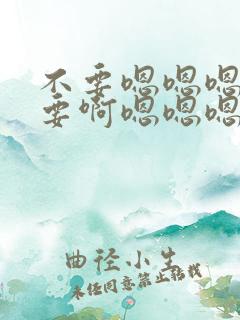 不要嗯嗯嗯
要啊嗯嗯嗯
曲径小生
未经同意禁止转载